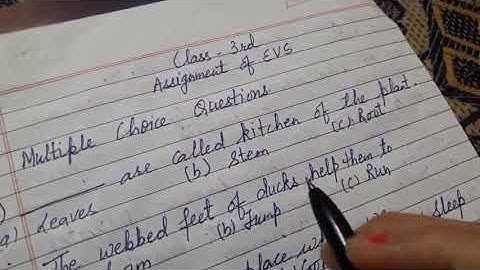 Class - 3rd
Assignment of EVS
Multiple Choice Questions
______ are called kitchen of the plant.
Leaves (b) Stem (c) Root
The webbed feet of ducks help them to
(b) Jump (c) Run
place sleep